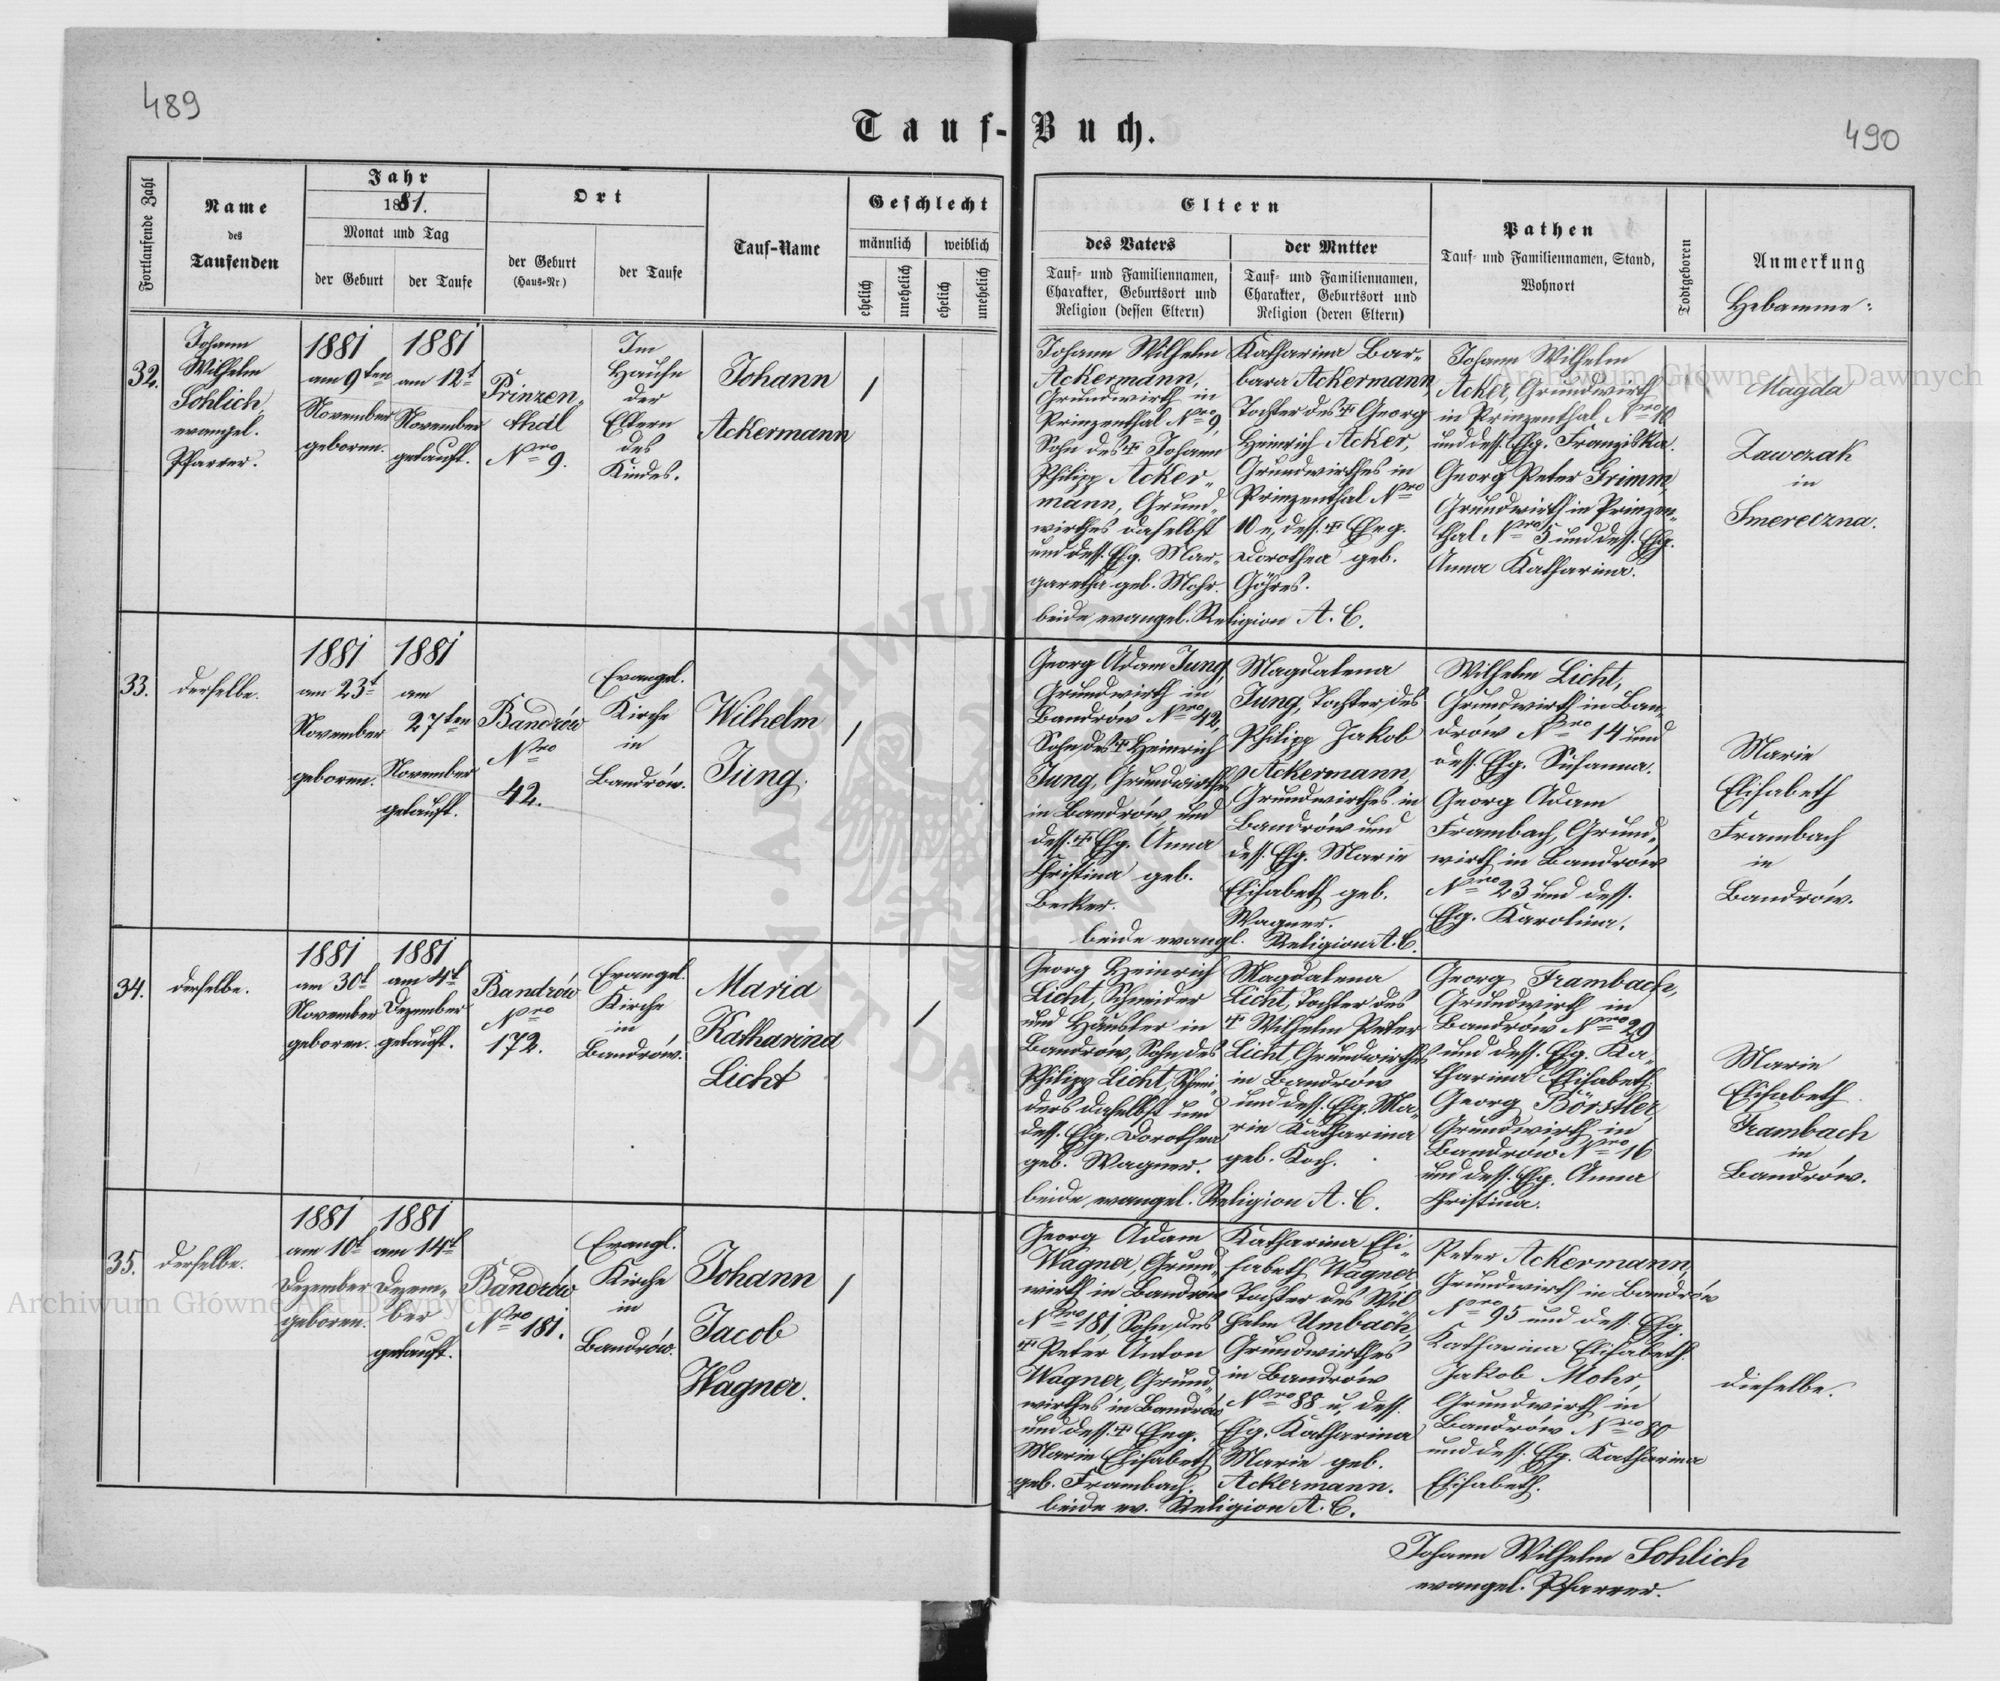 489
490
Tauf-Buch.
Fortlaufende Zahl
Name
des
Taufenden
Jahr
1881.
Monat und Tag
der Geburt
der Taufe
Ort
der Geburt
(Haus-Nr)
der Taufe
Tauf-Name
Geschlecht
männlich
weiblich
ehelich
unehelich
ehelich
unehelich
Eltern
des Vaters
Tauf- und Familiennamen,
Charakter, Geburtsort und
Religion (dessen Eltern)
der Mutter
Tauf- und Familiennamen,
Charakter, Geburtsort und
Religion (deren Eltern)
Pathen
Tauf- und Familiennamen, Stand,
Wohnort
Todtgeboren
Anmerkung
Hebamme:
32.
Johann
Wilhelm
Sohlich,
evangel.
Pfarrer.
1881
am 9ten
November
geboren.
1881
am 12t
November
getauft.
Prinzen-
thal
Nro 9.
Im
Hause
der
Eltern
des
Kindes.
Johann
Ackermann
/
Johann Wilhelm
Ackermann,
Grundwirth in
Prinzenthal Nro 9,
Sohn des † Johann
Philipp Acker-
mann, Grund-
wirthes daselbst
und dess. Ehg. Mar-
garetha geb. Mohr.
Katharina Bar-
bara Ackermann,
Tochter des † Georg
Heinrich Acker,
Grundwirthes in
Prinzenthal Nro
10 u. dess. † Eheg.
Dorothea geb.
Göhres.
beide evangel. Religion A. C.
Johann Wilhelm
Acker, Grundwirth
in Prinzenthal Nro 10
und dess. Ehg. Franziska.
Georg Peter Grimm,
Grundwirth in Prinzen-
thal Nro 5 und dess. Ehg.
Anna Katharina.
Magda
Zawczak
in
Smereczna.
33.
derselbe.
1881
am 23t
November
geboren.
1881
am
27ten
November
getauft.
Bandrów
Nro
42.
Evangel.
Kirche
in
Bandrów.
Wilhelm
Jung.
/
Georg Adam Jung,
Grundwirth in
Bandrów Nro 42,
Sohn des † Heinrich
Jung, Grundwirthes
in Bandrów und
dess. † Ehg. Anna
Christina geb.
Becker.
Magdalena
Jung, Tochter des
Philipp Jakob
Ackermann,
Grundwirthes in
Bandrów und
dess. Ehg. Marie
Elisabeth geb.
Wagner.
beide evangl. Religion A. C.
Wilhelm Licht,
Grundwirth in Ban-
drów Nro 14 und
dess. Ehg. Susanna.
Georg Adam
Frambach, Grund-
wirth in Bandrów
Nro 23 und dess.
Ehg. Karolina.
Marie
Elisabeth
Frambach
in
Bandrów.
34.
derselbe.
1881
am 30t
November
geboren.
1881
am 4t
Dezember
getauft.
Bandrów
Nro
172.
Evangel.
Kirche
in
Bandrów.
Maria
Katharina
Licht
/
Georg Heinrich
Licht, Schneider
und Häusler in
Bandrów, Sohn des
Philipp Licht, Schnei-
ders daselbst und
dess. Ehg. Dorothea
geb. Wagner.
Magdalena
Licht, Tochter des
† Wilhelm Peter
Licht, Grundwirthes
in Bandrów
und dess. Ehg. Ma-
rie Katharina
geb. Koch.
beide evangel. Religion A. C.
Georg Frambach,
Grundwirth in
Bandrów Nro 29
und dess. Ehg. Ka-
tharina Elisabeth.
Georg Börstler,
Grundwirth in
Bandrów Nro 16
und dess. Ehg. Anna
Christina.
Marie
Elisabeth
Frambach
in
Bandrów.
35.
derselbe.
1881
am 10t
Dezember
geboren.
1881
am 14t
Dezem-
ber
getauft.
Bandrów
Nro 181.
Evangl.
Kirche
in
Bandrów.
Johann
Jacob
Wagner.
/
Georg Adam
Wagner, Grund-
wirth in Bandrów
Nro 181, Sohn des
† Peter Anton
Wagner, Grund-
wirthes in Bandrów
und dess. † Eheg.
Marie Elisabeth
geb. Frambach.
Katharina Eli-
sabeth Wagner
Tochter des Wil-
helm Umbach,
Grundwirthes
in Bandrów
Nro 88 u. dess.
Ehg. Katharina
Marie geb.
Ackermann.
beide ev. Religion A. C.
Peter Ackermann,
Grundwirth in Bandrów
Nro 95 und dess. Ehg.
Katharina Elisabeth.
Jakob Mohr,
Grundwirth in
Bandrów Nro 80
und dess. Ehg. Katharina
Elisabeth.
dieselbe.
Johann Wilhelm Sohlich
evangel. Pfarrer.
Archiwum Główne Akt Dawnych
Archiwum Główne Akt Dawnych